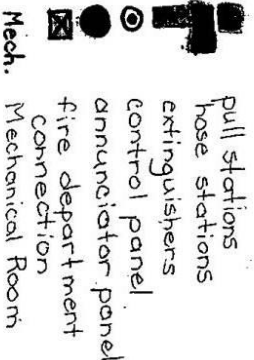 pull stations
hose stations
extinguishers
control panel
annunciator panel
fire department
connection
Mech. Mechanical Room